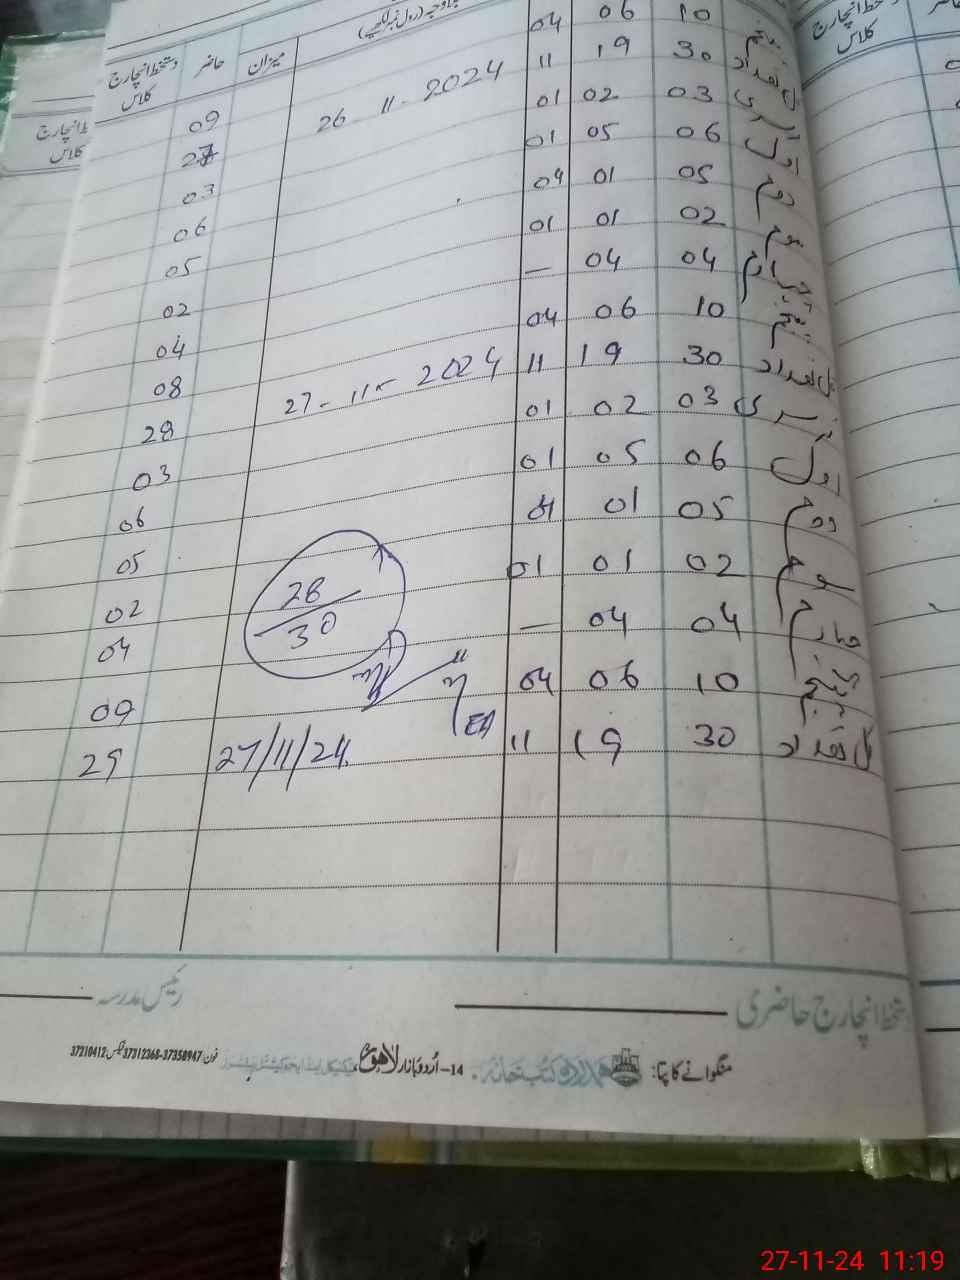 دستخط انچارج کلاس حاضر میزان
04 06 10 پنجم
09 26-11-2024 11 19 30 کل تعداد
27 01 02 03
03 01 05 06 اول
06 04 01 05 دوم
05 01 01 02 سوم
02 — 04 04 چہارم
04 04 06 10 پنجم
08 27-11-2024 11 19 30 کل تعداد
28 01 02 03
03 01 05 06 اول
06 04 01 05 دوم
05 01 01 02 سوم
02 28/30 — 04 04 چہارم
04
09 04 06 10 پنجم
29 27/11/24 11 19 30 کل تعداد
رئیس مدرسہ دستخط انچارج حاضری
منگوانے کا پتا: کتب خانہ 14-اُردو بازار لاہور فون: 37358947-37312368 فیکس 37210412
27-11-24 11:19